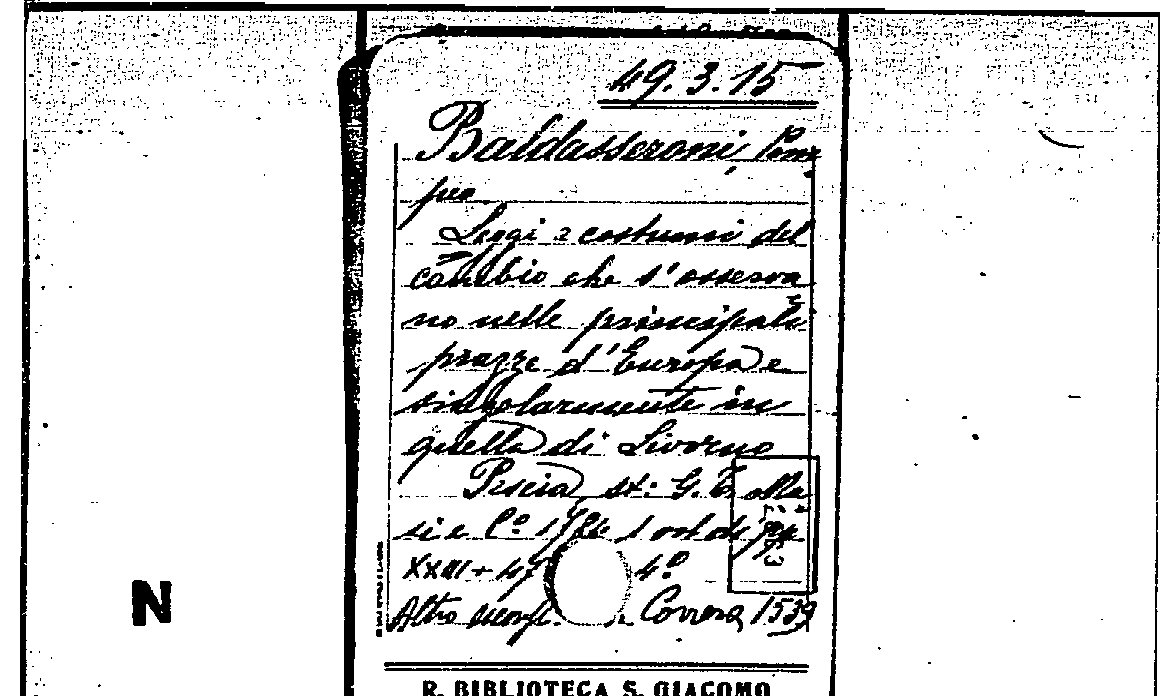 49.3.15
Baldasseroni, Pom
peo
Leggi e costumi del
cambio che s'osserva
no nelle principali
piazze d'Europa e
singolarmente in
quella di Livorno
Pescia st: G. T. Ma
si e C.º 1 vol. di pp
XXIII + 4º
Altro esempl. Correra, 1539
N
R. BIBLIOTECA S. GIACOMO